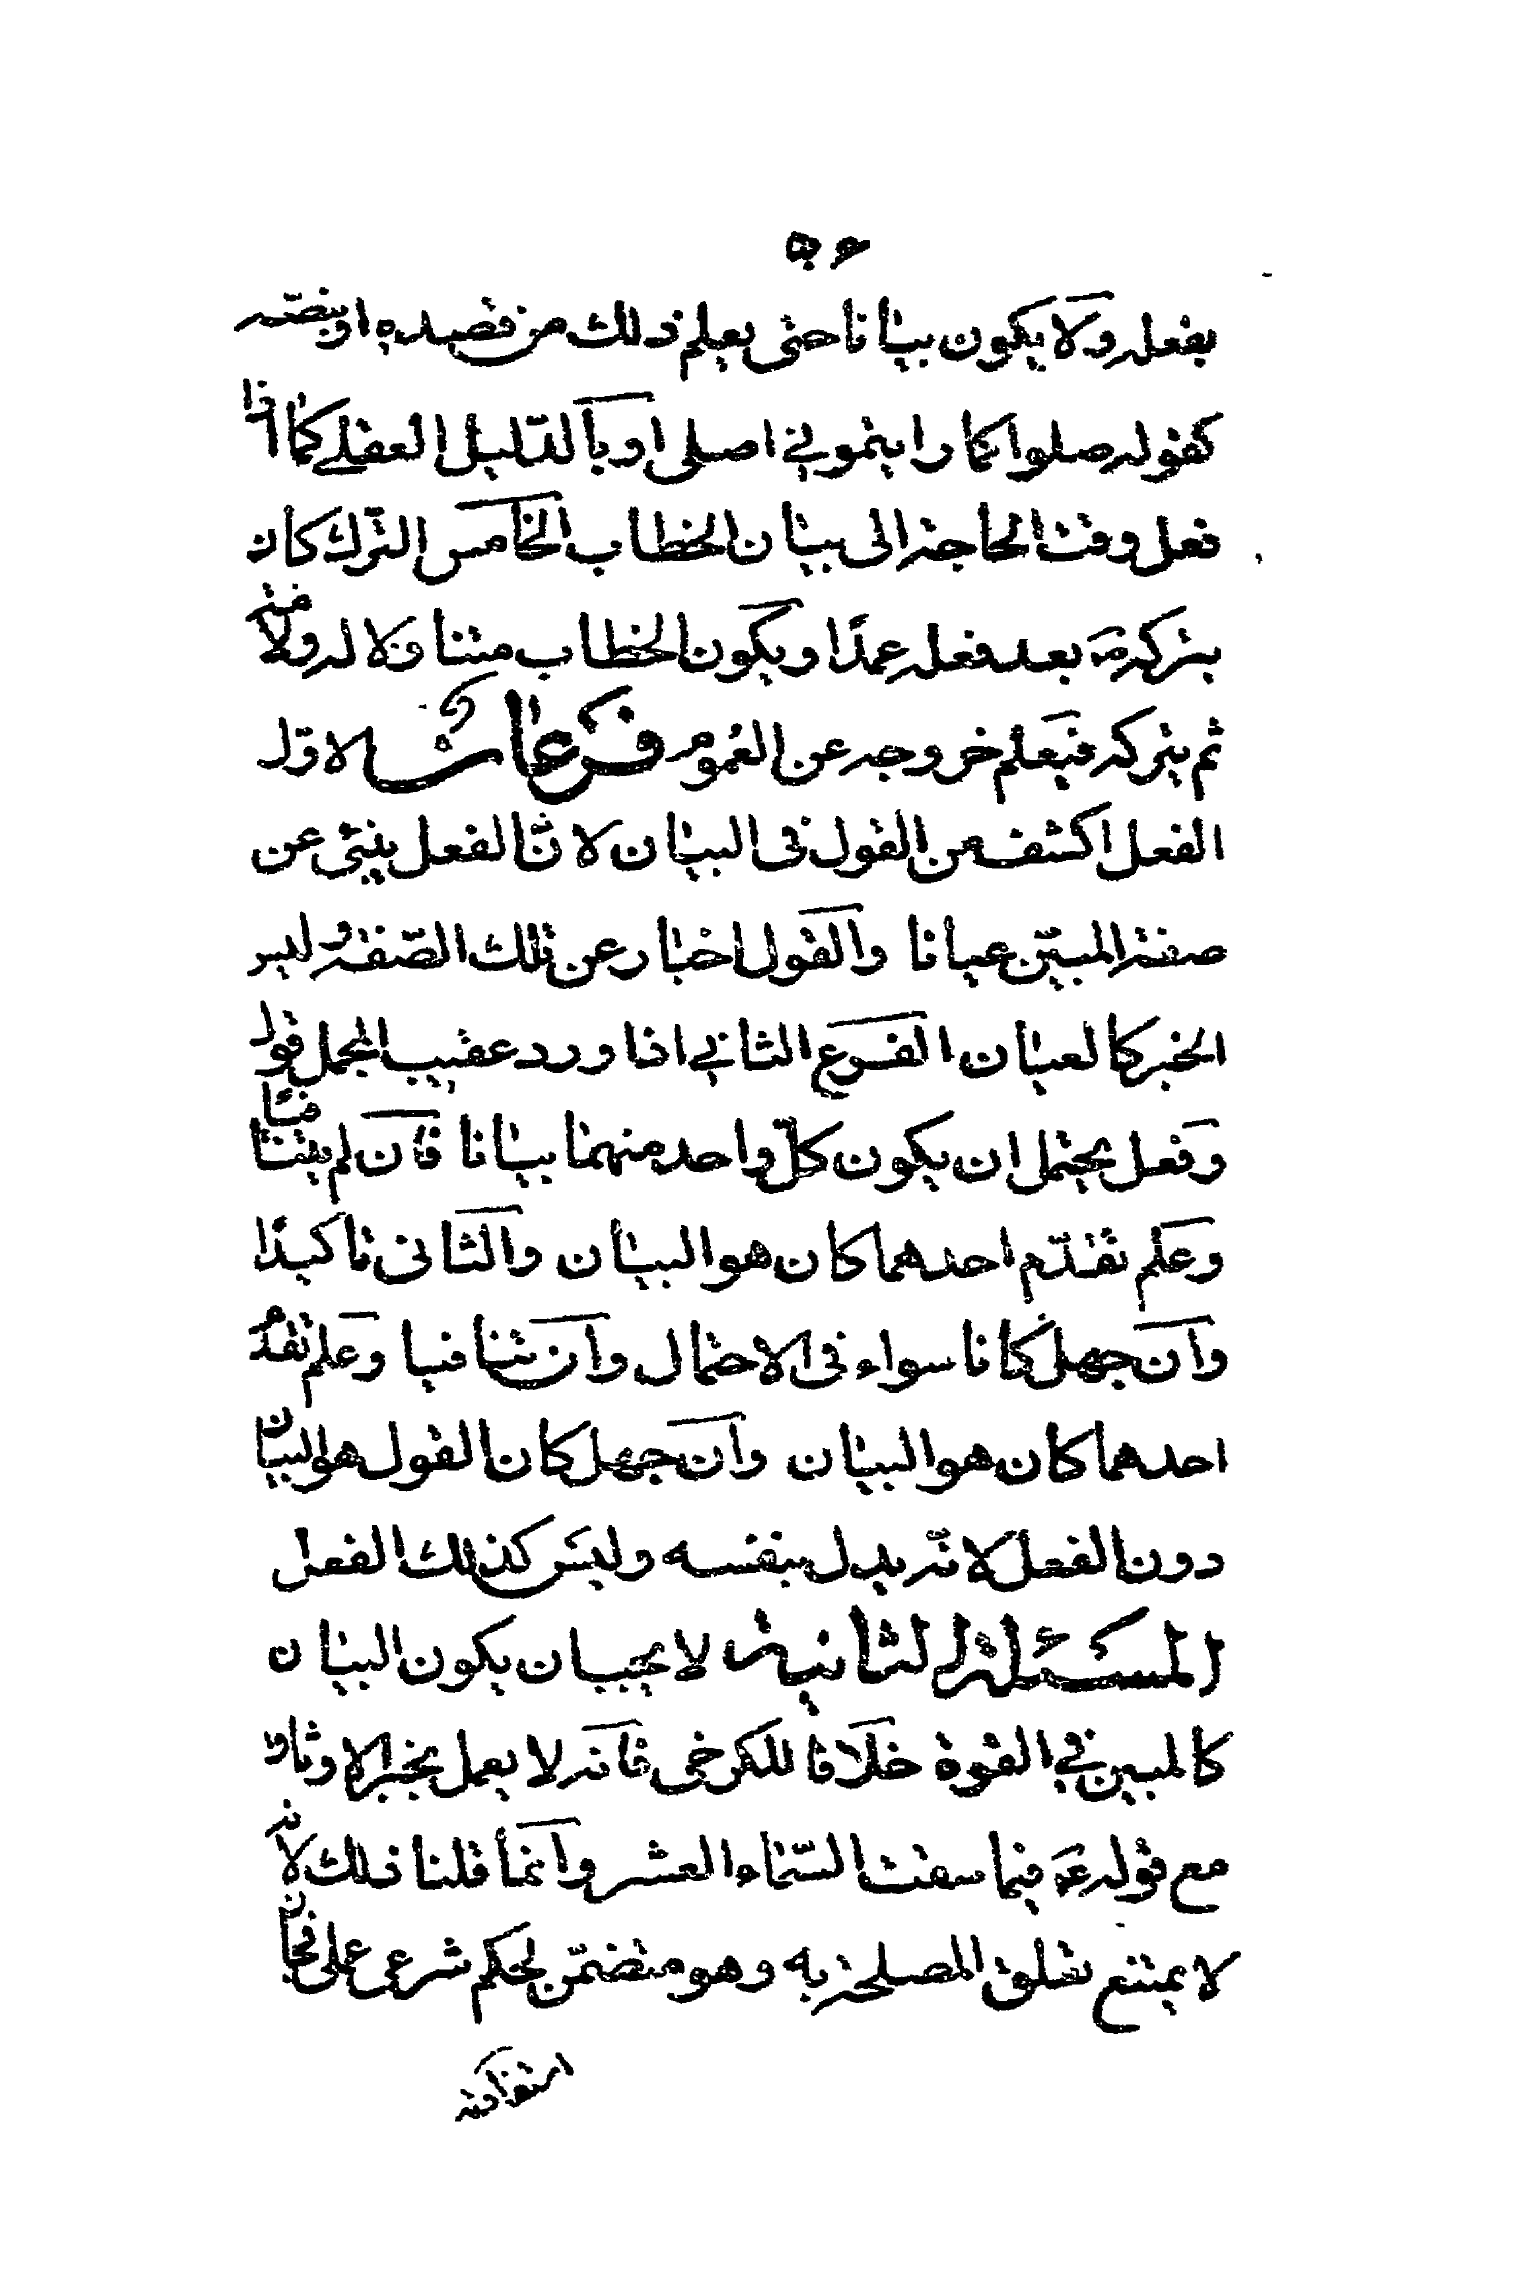 ٥٦
بفعله ولا يكون بيانا حتى يعلم ذلك من قصده او بنصّه
كقوله صلوا كما رايتموني اصلى او بالدليل العقلي كما اذا
فعل وقت الحاجة الى بيان الخطاب الخامس الترك كان
يتركه بعد فعله عمدًا ويكون الخطاب متناولا له ولامته
ثم يتركه فيعلم خروجه عن العموم فرعان الاوّل
الفعل اكشف من القول فى البيان لانّ الفعل ينبئ عن
صفة المبيّن عيانا والقول اخبار عن تلك الصّفة وليس
الخبر كالعيان الفرع الثاني اذا ورد عقيب المجمل قول
وفعل يحتمل ان يكون كلّ واحد منهما بيانا فان لم يتنافيا
وعلم تقدّم احدهما كان هو البيان والثانى تاكيدًا
وان جهل كانا سواء فى الاحتمال وان تنافيا وعلم تقدّم
احدهما كان هو البيان وان جهل كان القول هو البيان
دون الفعل لانّه يدل بنفسه وليس كذلك الفعل
المسئلة الثانية لا يجب ان يكون البيان
كالمبين في القوة خلافا للكرخى فانه لا يعمل بخبر الاوساق
مع قوله فيما سقت السّماء العشر وانما قلنا ذلك لانه
لا يمتنع تعلق المصلحة به وهو متضمّن لحكم شرعى على فجاز